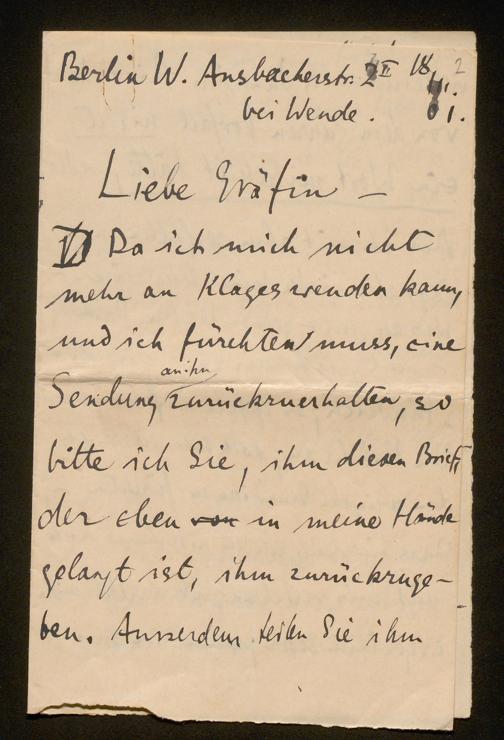 Berlin W. Ansbacherstr. II 18. 2
bei Wende. 01.
Liebe Gräfin –
Da ich mich nicht
mehr an Klages wenden kann,
und ich fürchten muss, eine
an ihn
Sendung zurückzuerhalten, so
bitte ich Sie, ihm diesen Brief,
der eben von in meine Hände
gelangt ist, ihm zurückzuge-
ben. Ausserdem teilen Sie ihm